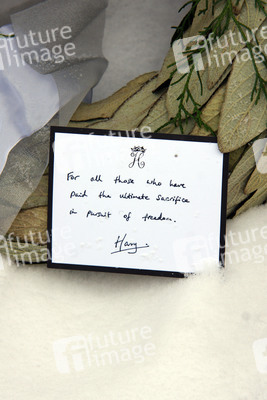 future image
future image
H
For all those who have
paid the ultimate sacrifice
in pursuit of freedom.
Harry.
future image
future image
future image